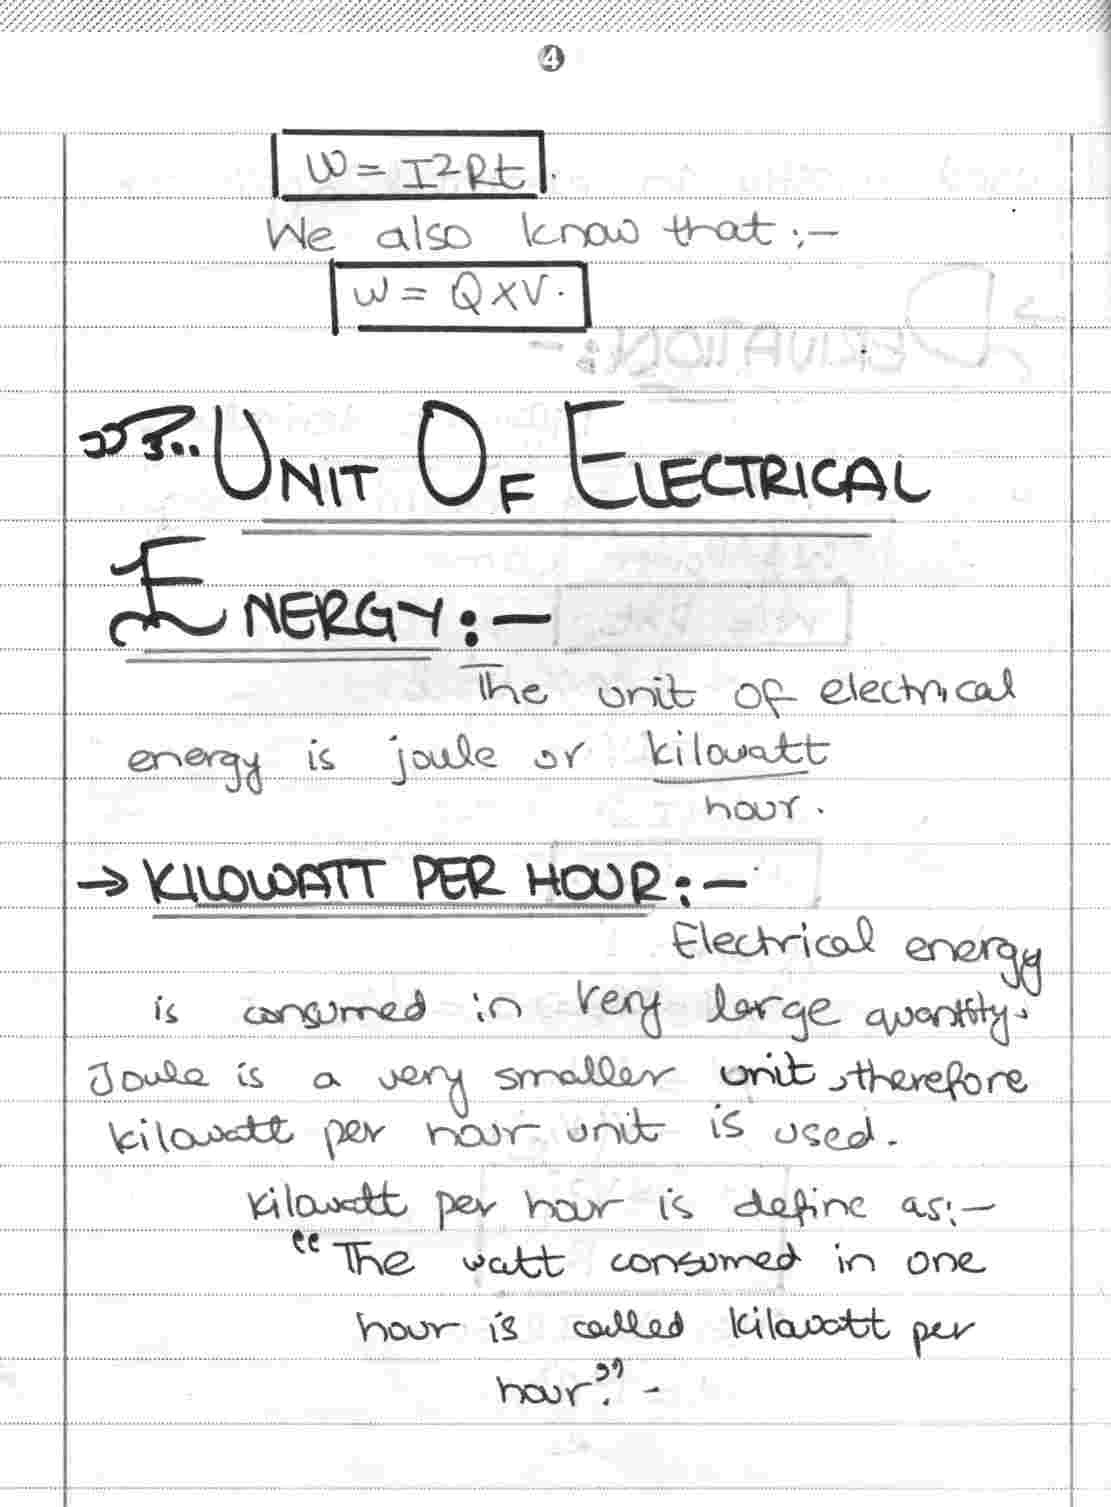 4
W = I²Rt.
We also know that :-
W = Q x V.
UNIT OF ELECTRICAL
ENERGY :-
The unit of electrical
energy is joule or kilowatt
hour.
→ KILOWATT PER HOUR :-
Electrical energy
is consumed in very large quantity.
Joule is a very smaller unit, therefore
kilowatt per hour unit is used.
Kilowatt per hour is define as:-
"The watt consumed in one
hour is called kilowatt per
hour." -